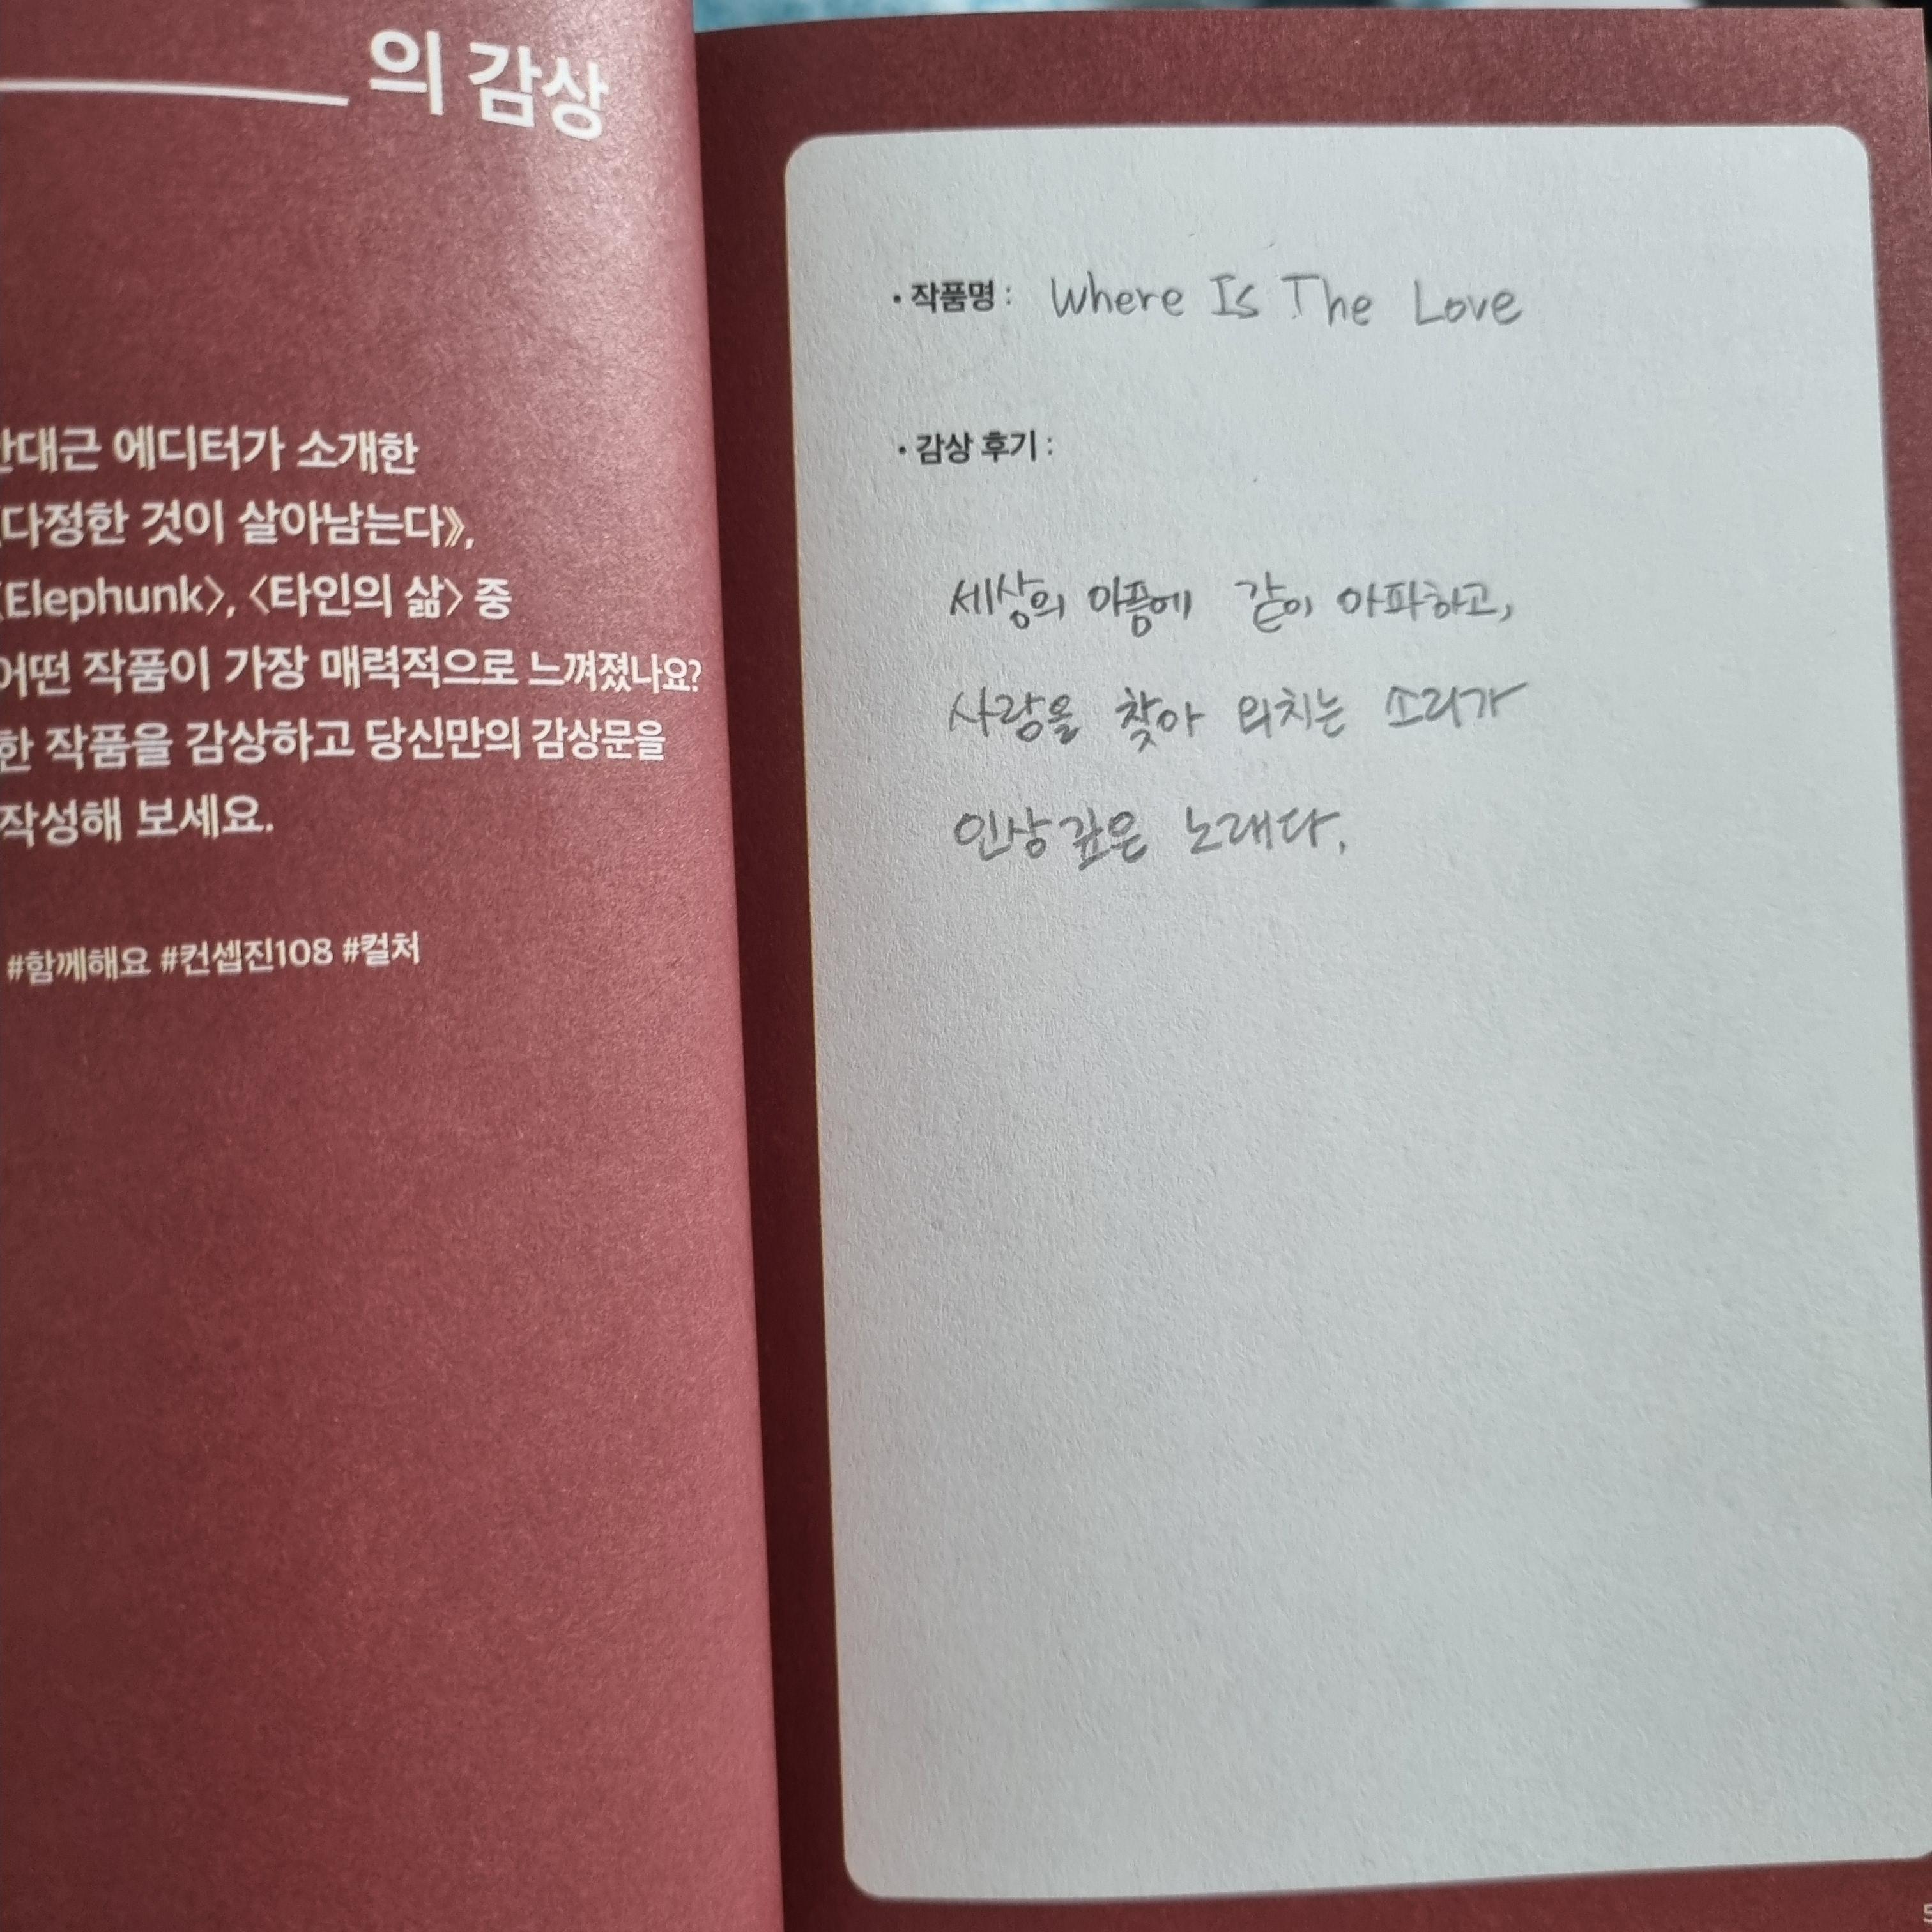 의 감상
에디터가 소개한
다정한 것이 살아남는다》,
〈Elephunk〉, 〈타인의 삶〉 중
어떤 작품이 가장 매력적으로 느껴졌나요?
한 작품을 감상하고 당신만의 감상문을
작성해 보세요.
#함께해요 #컨셉진108 #컬처
• 작품명 : Where Is The Love
• 감상 후기 :
세상의 아픔에 같이 아파하고,
사랑을 찾아 외치는 소리가
인상깊은 노래다.